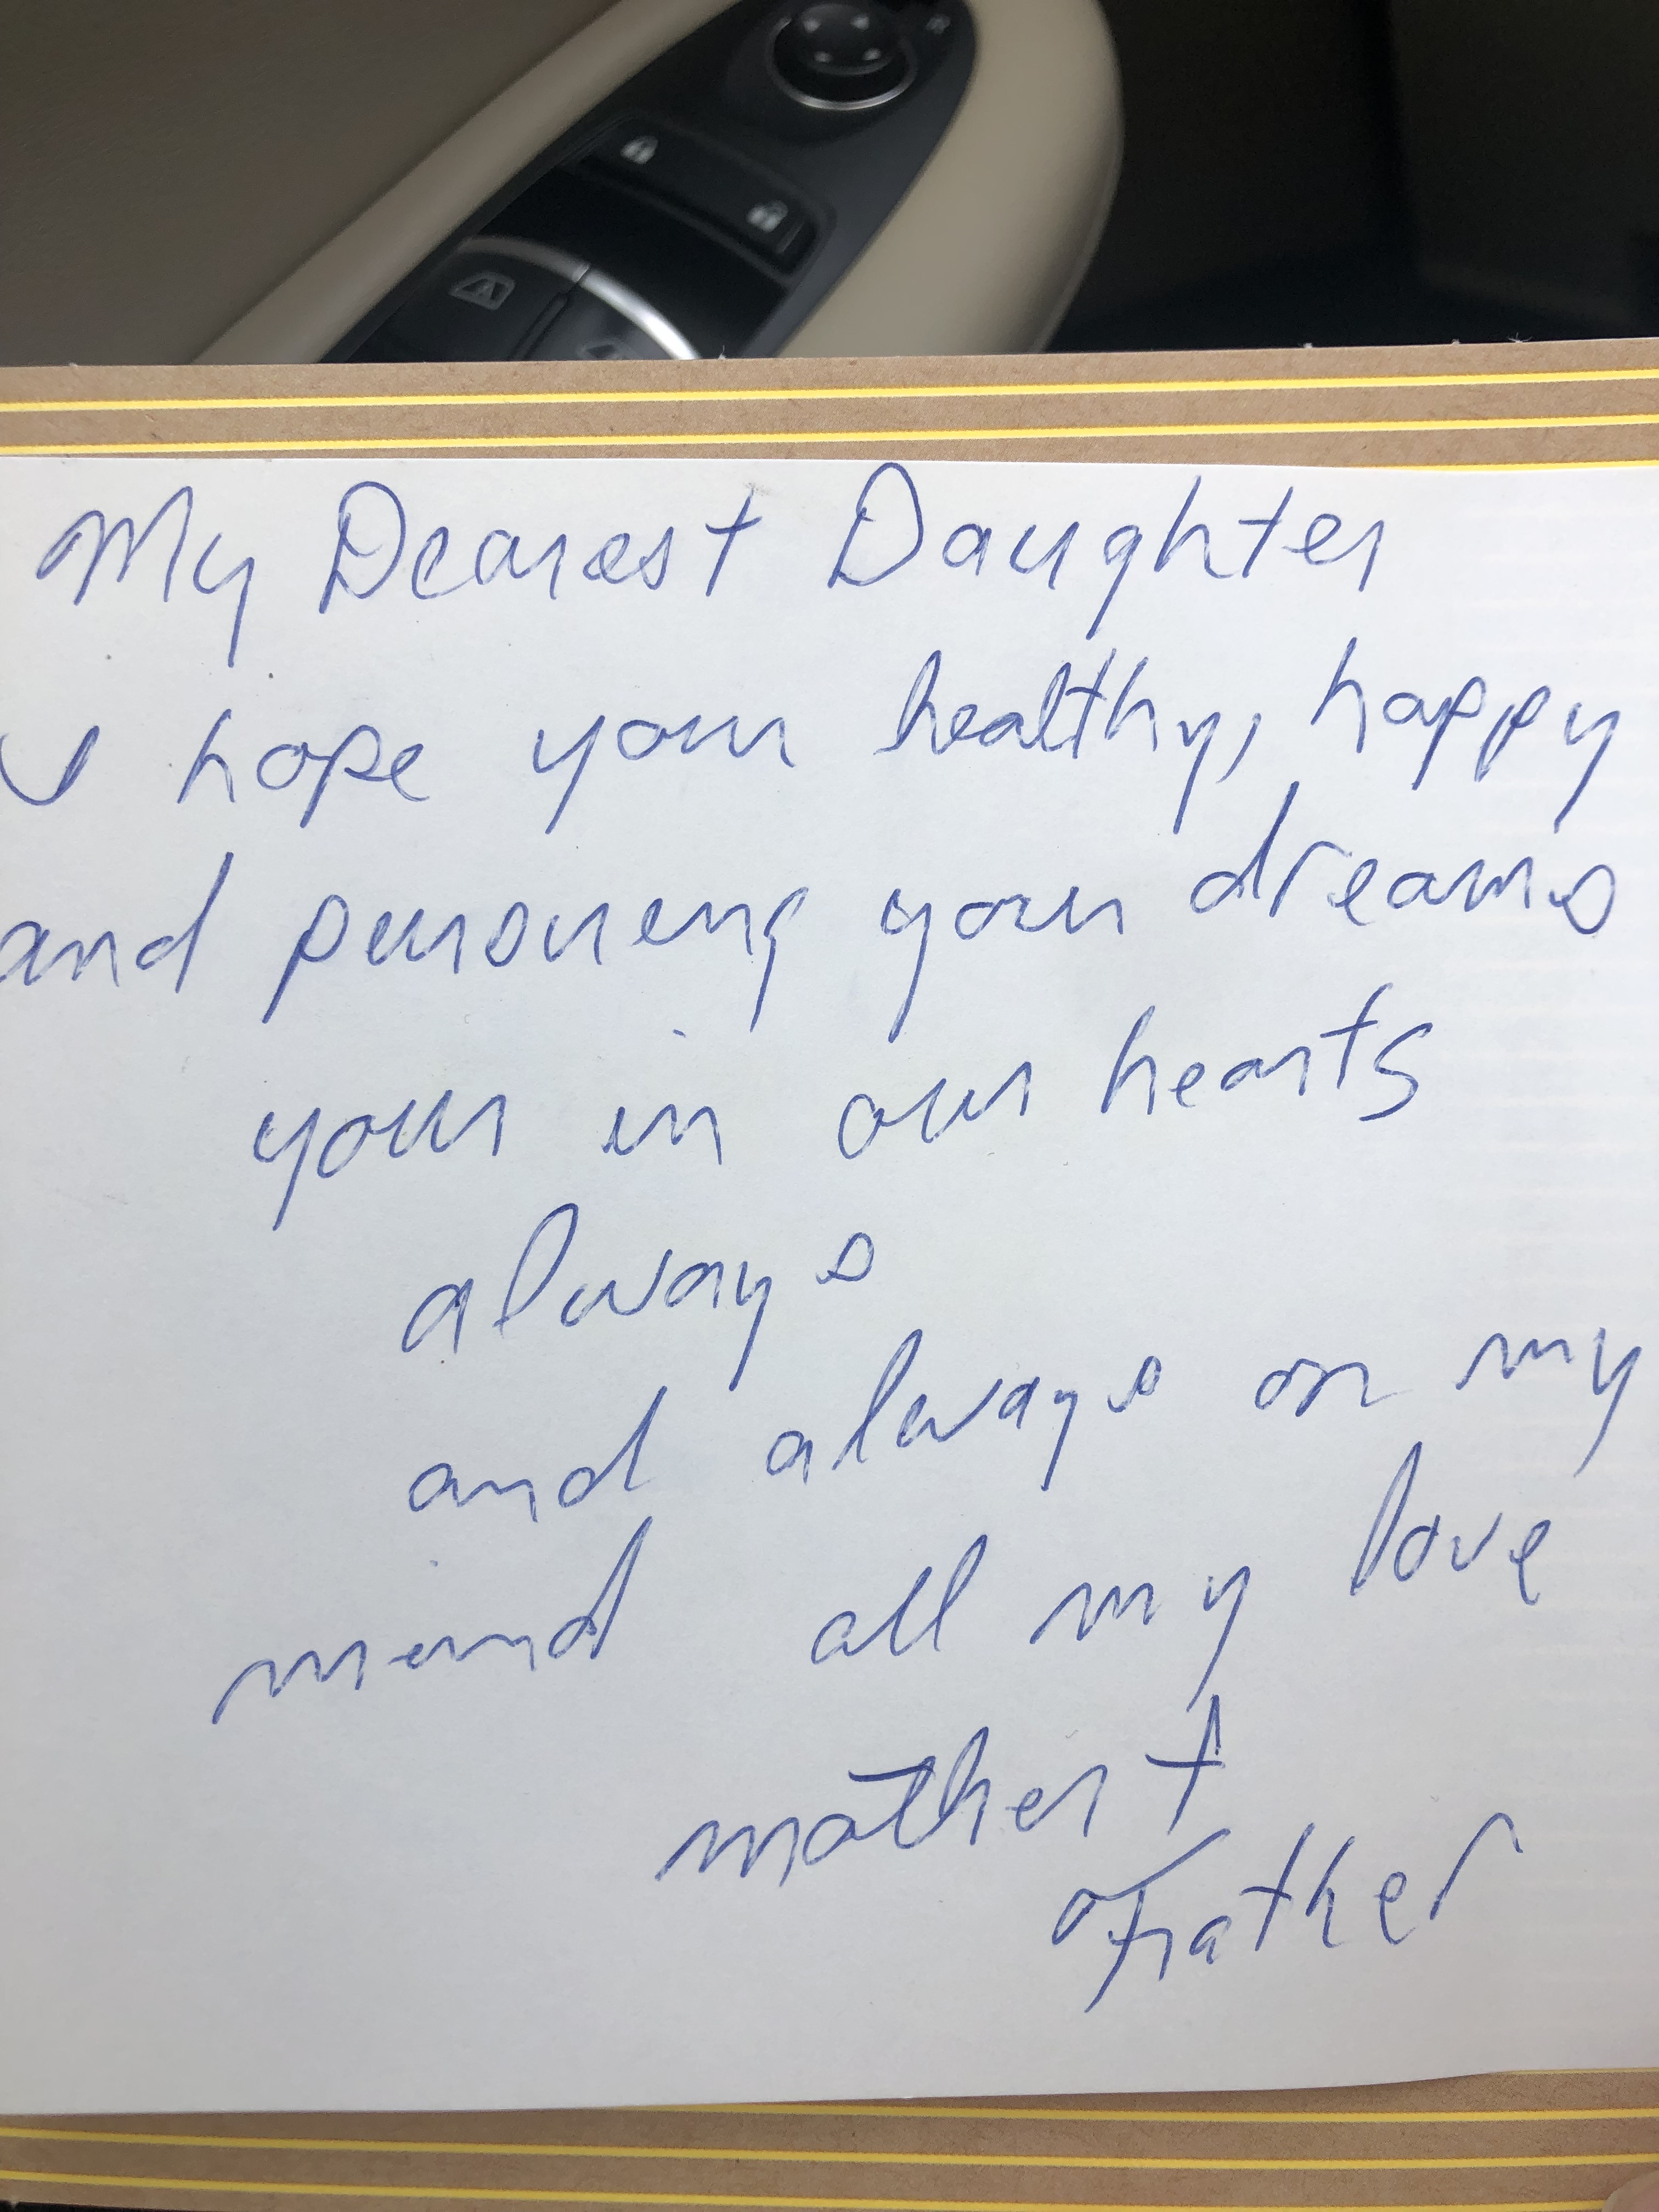 My Dearest Daughter
I hope your healthy, happy
and pursueing your dreams
your in our hearts
always
and always on my
mind all my love
mother +
Father